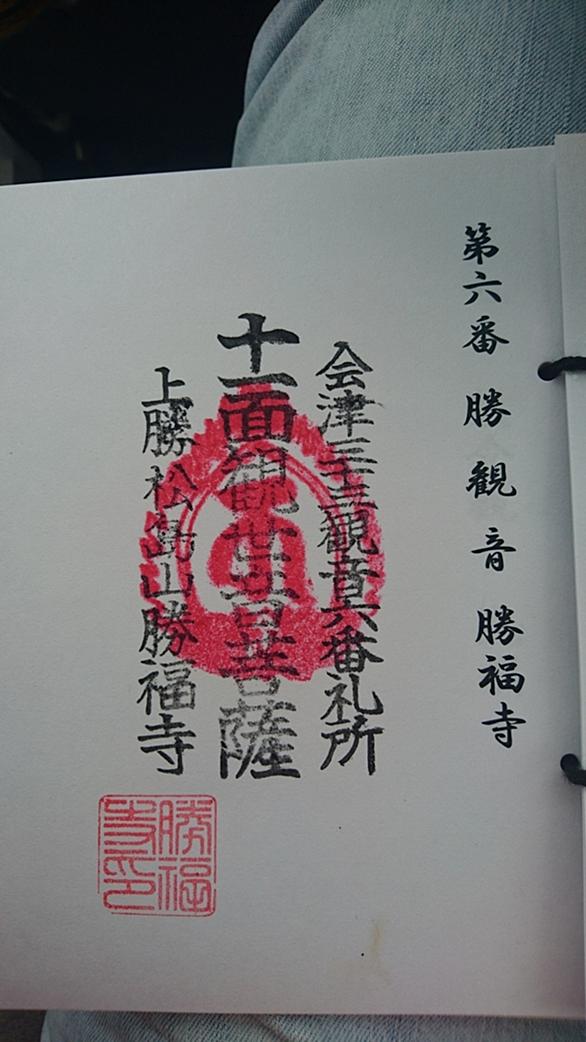 第六番 勝観音 勝福寺
会津三十三観音六番礼所
十一面観世音菩薩
上勝松島山勝福寺
勝福寺印